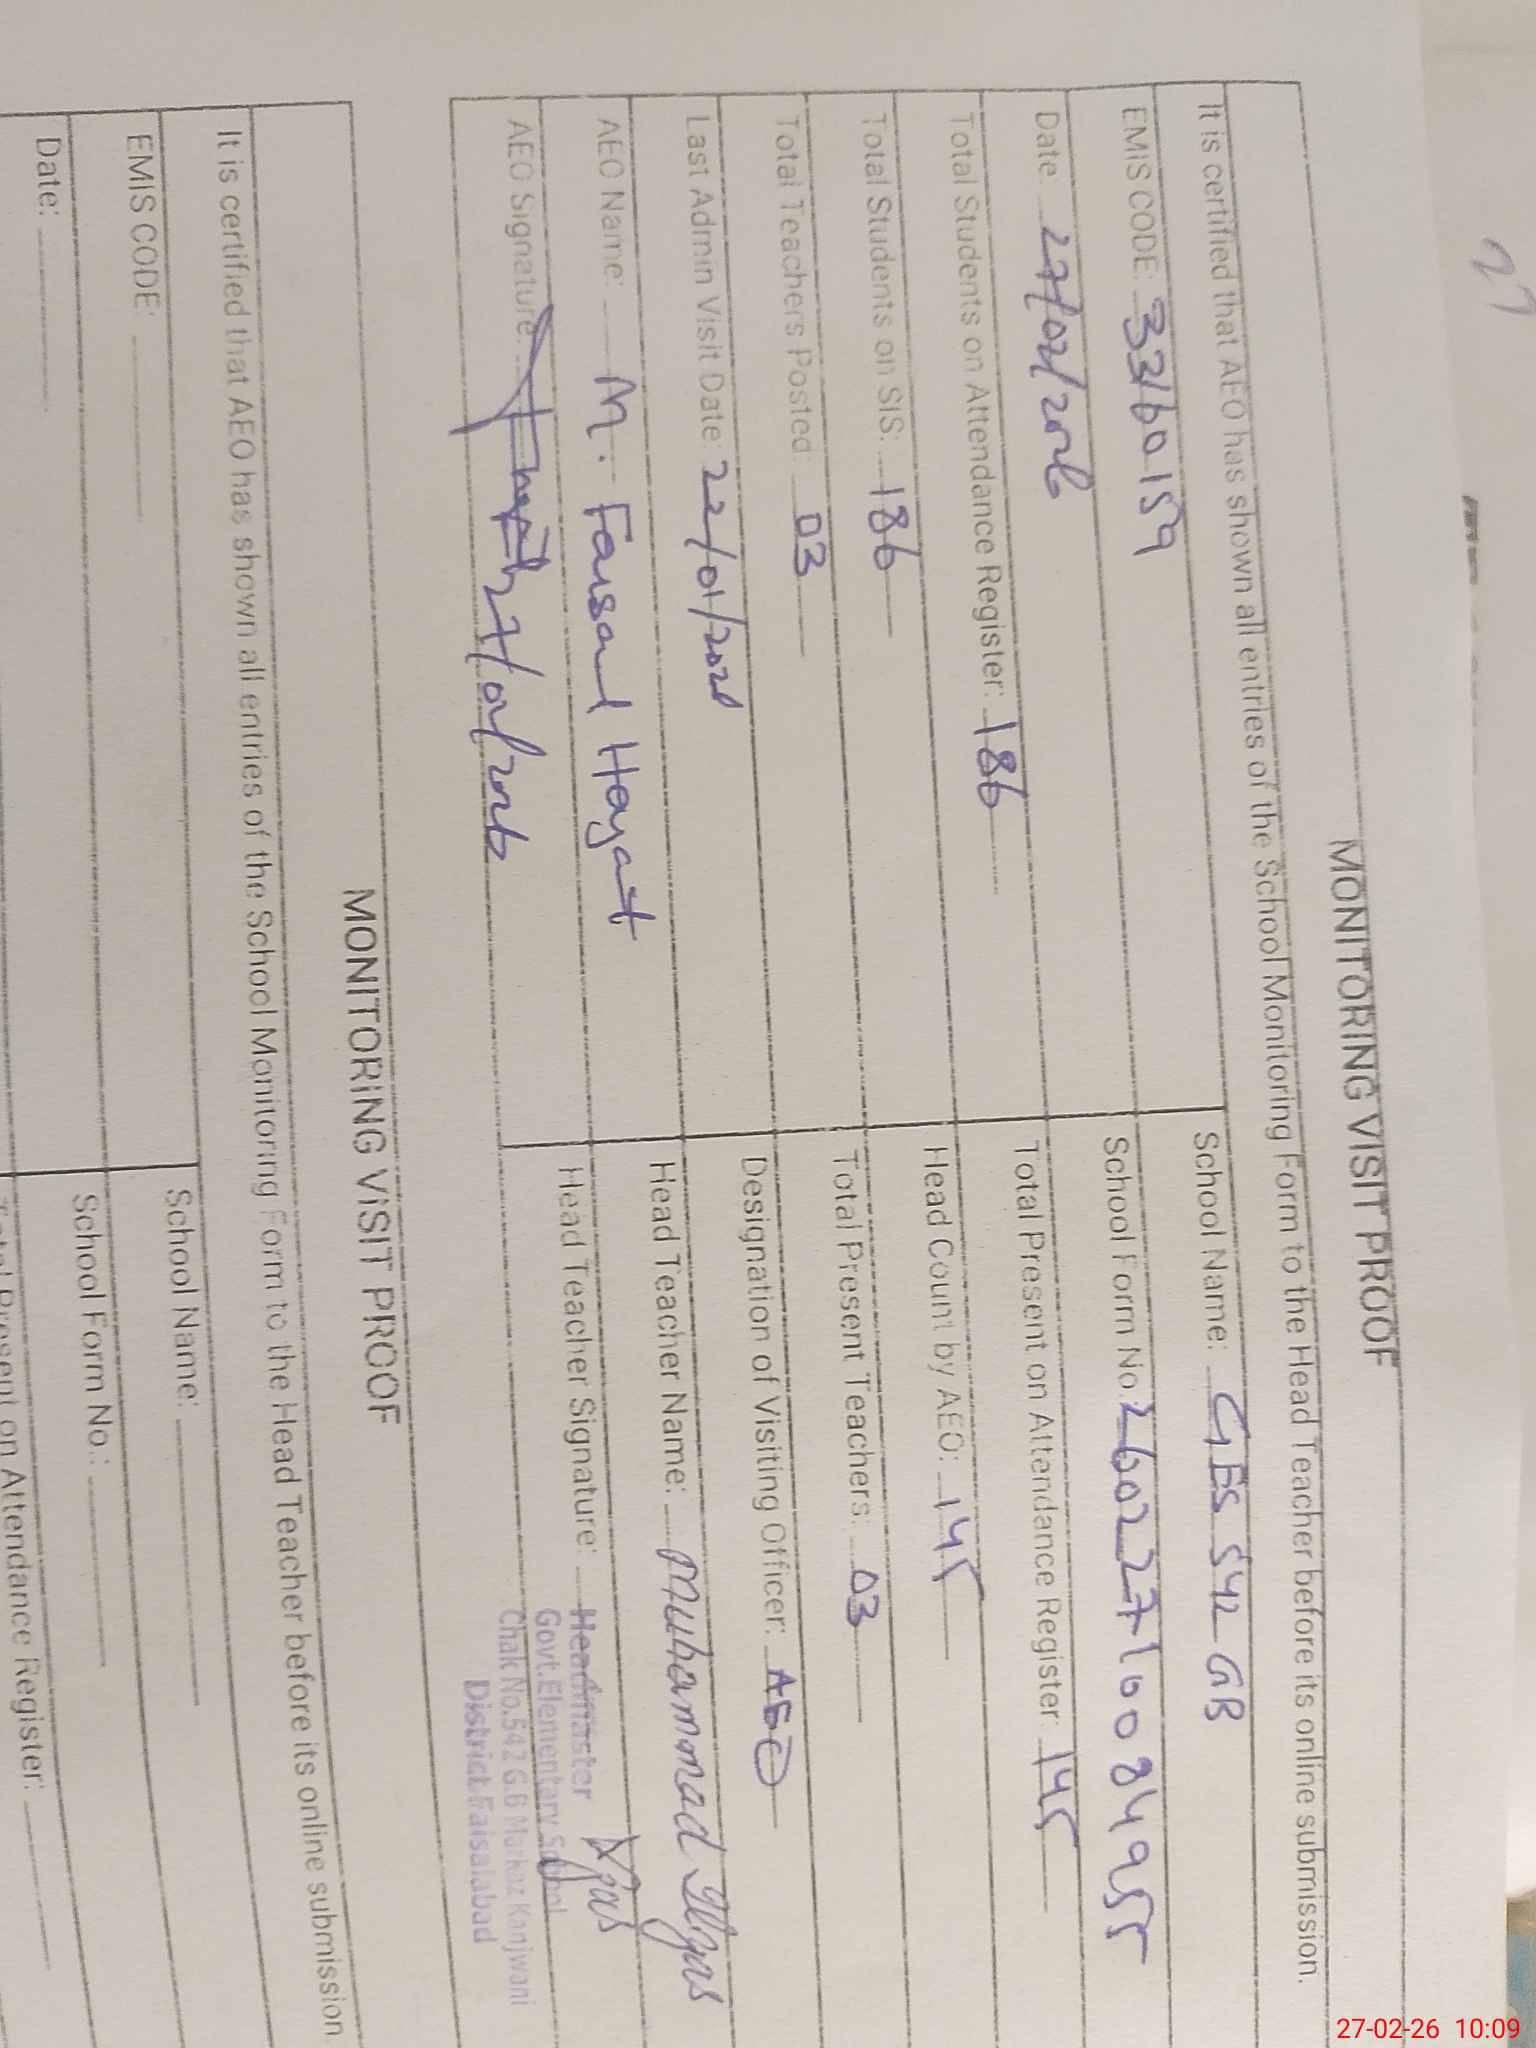 27
MONITORING VISIT PROOF
It is certified that AEO has shown all entries of the School Monitoring Form to the Head Teacher before its online submission.
EMIS CODE: 33160159
School Name: GES 542 GB
Date: 27/02/2026
School Form No. 26022710084955
Total Students on Attendance Register: 186
Total Present on Attendance Register: 145
Total Students on SIS: 186
Head Count by AEO: 145
Total Teachers Posted: 03
Total Present Teachers: 03
Last Admin Visit Date: 22/01/2026
Designation of Visiting Officer: AEO
AEO Name: M. Faisal Hayat
Head Teacher Name: Muhammad Ilyas
AEO Signature: 27/02/2026
Head Teacher Signature: Ilyas
Headmaster
Govt.Elementary School
Chak No.542 G.B Markaz Kanjwani
District Faisalabad
MONITORING VISIT PROOF
It is certified that AEO has shown all entries of the School Monitoring Form to the Head Teacher before its online submission.
EMIS CODE:
School Name:
Date:
School Form No.:
Total Present on Attendance Register:
27-02-26 10:09